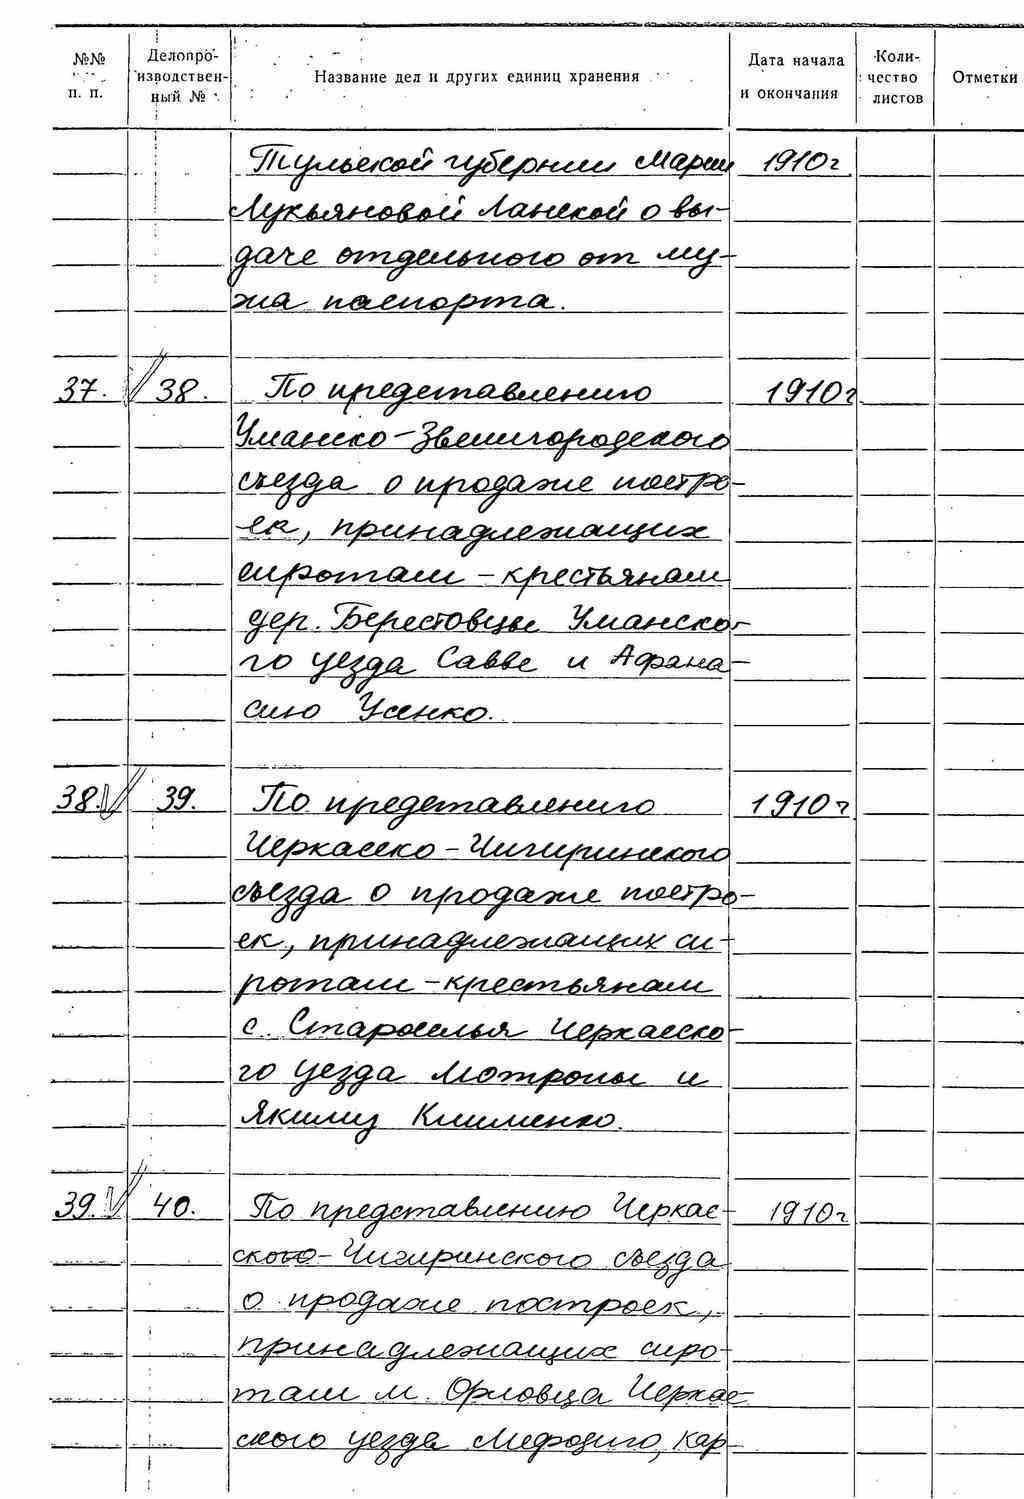 №№ п. п. Делопроизводственный № Название дел и других единиц хранения Дата начала и окончания Количество листов Отметки
Тульской губернии Марии 1910г.
Лукьяновой Ланской о вы-
даче отдельного от му-
жа паспорта.
37. 38. По представлению 1910г
Уманско-Звенигородского
съезда о продаже постро-
ек, принадлежащих
сиротам - крестьянам
дер. Берестовцы Уманско-
го уезда Савве и Афана-
сию Усенко.
38. 39. По представлению 1910г.
Черкасско-Чигиринского
съезда о продаже постро-
ек, принадлежащих си-
ротам - крестьянам
с. Староселья Черкасско-
го уезда Мотроны и
Якиму Клименко.
39. 40. По представлению Черкас- 1910г
ского-Чигиринского съезда
о продаже построек,
принадлежащих сиро-
там м. Орловца Черкас-
ского уезда Мефодию, Кар-